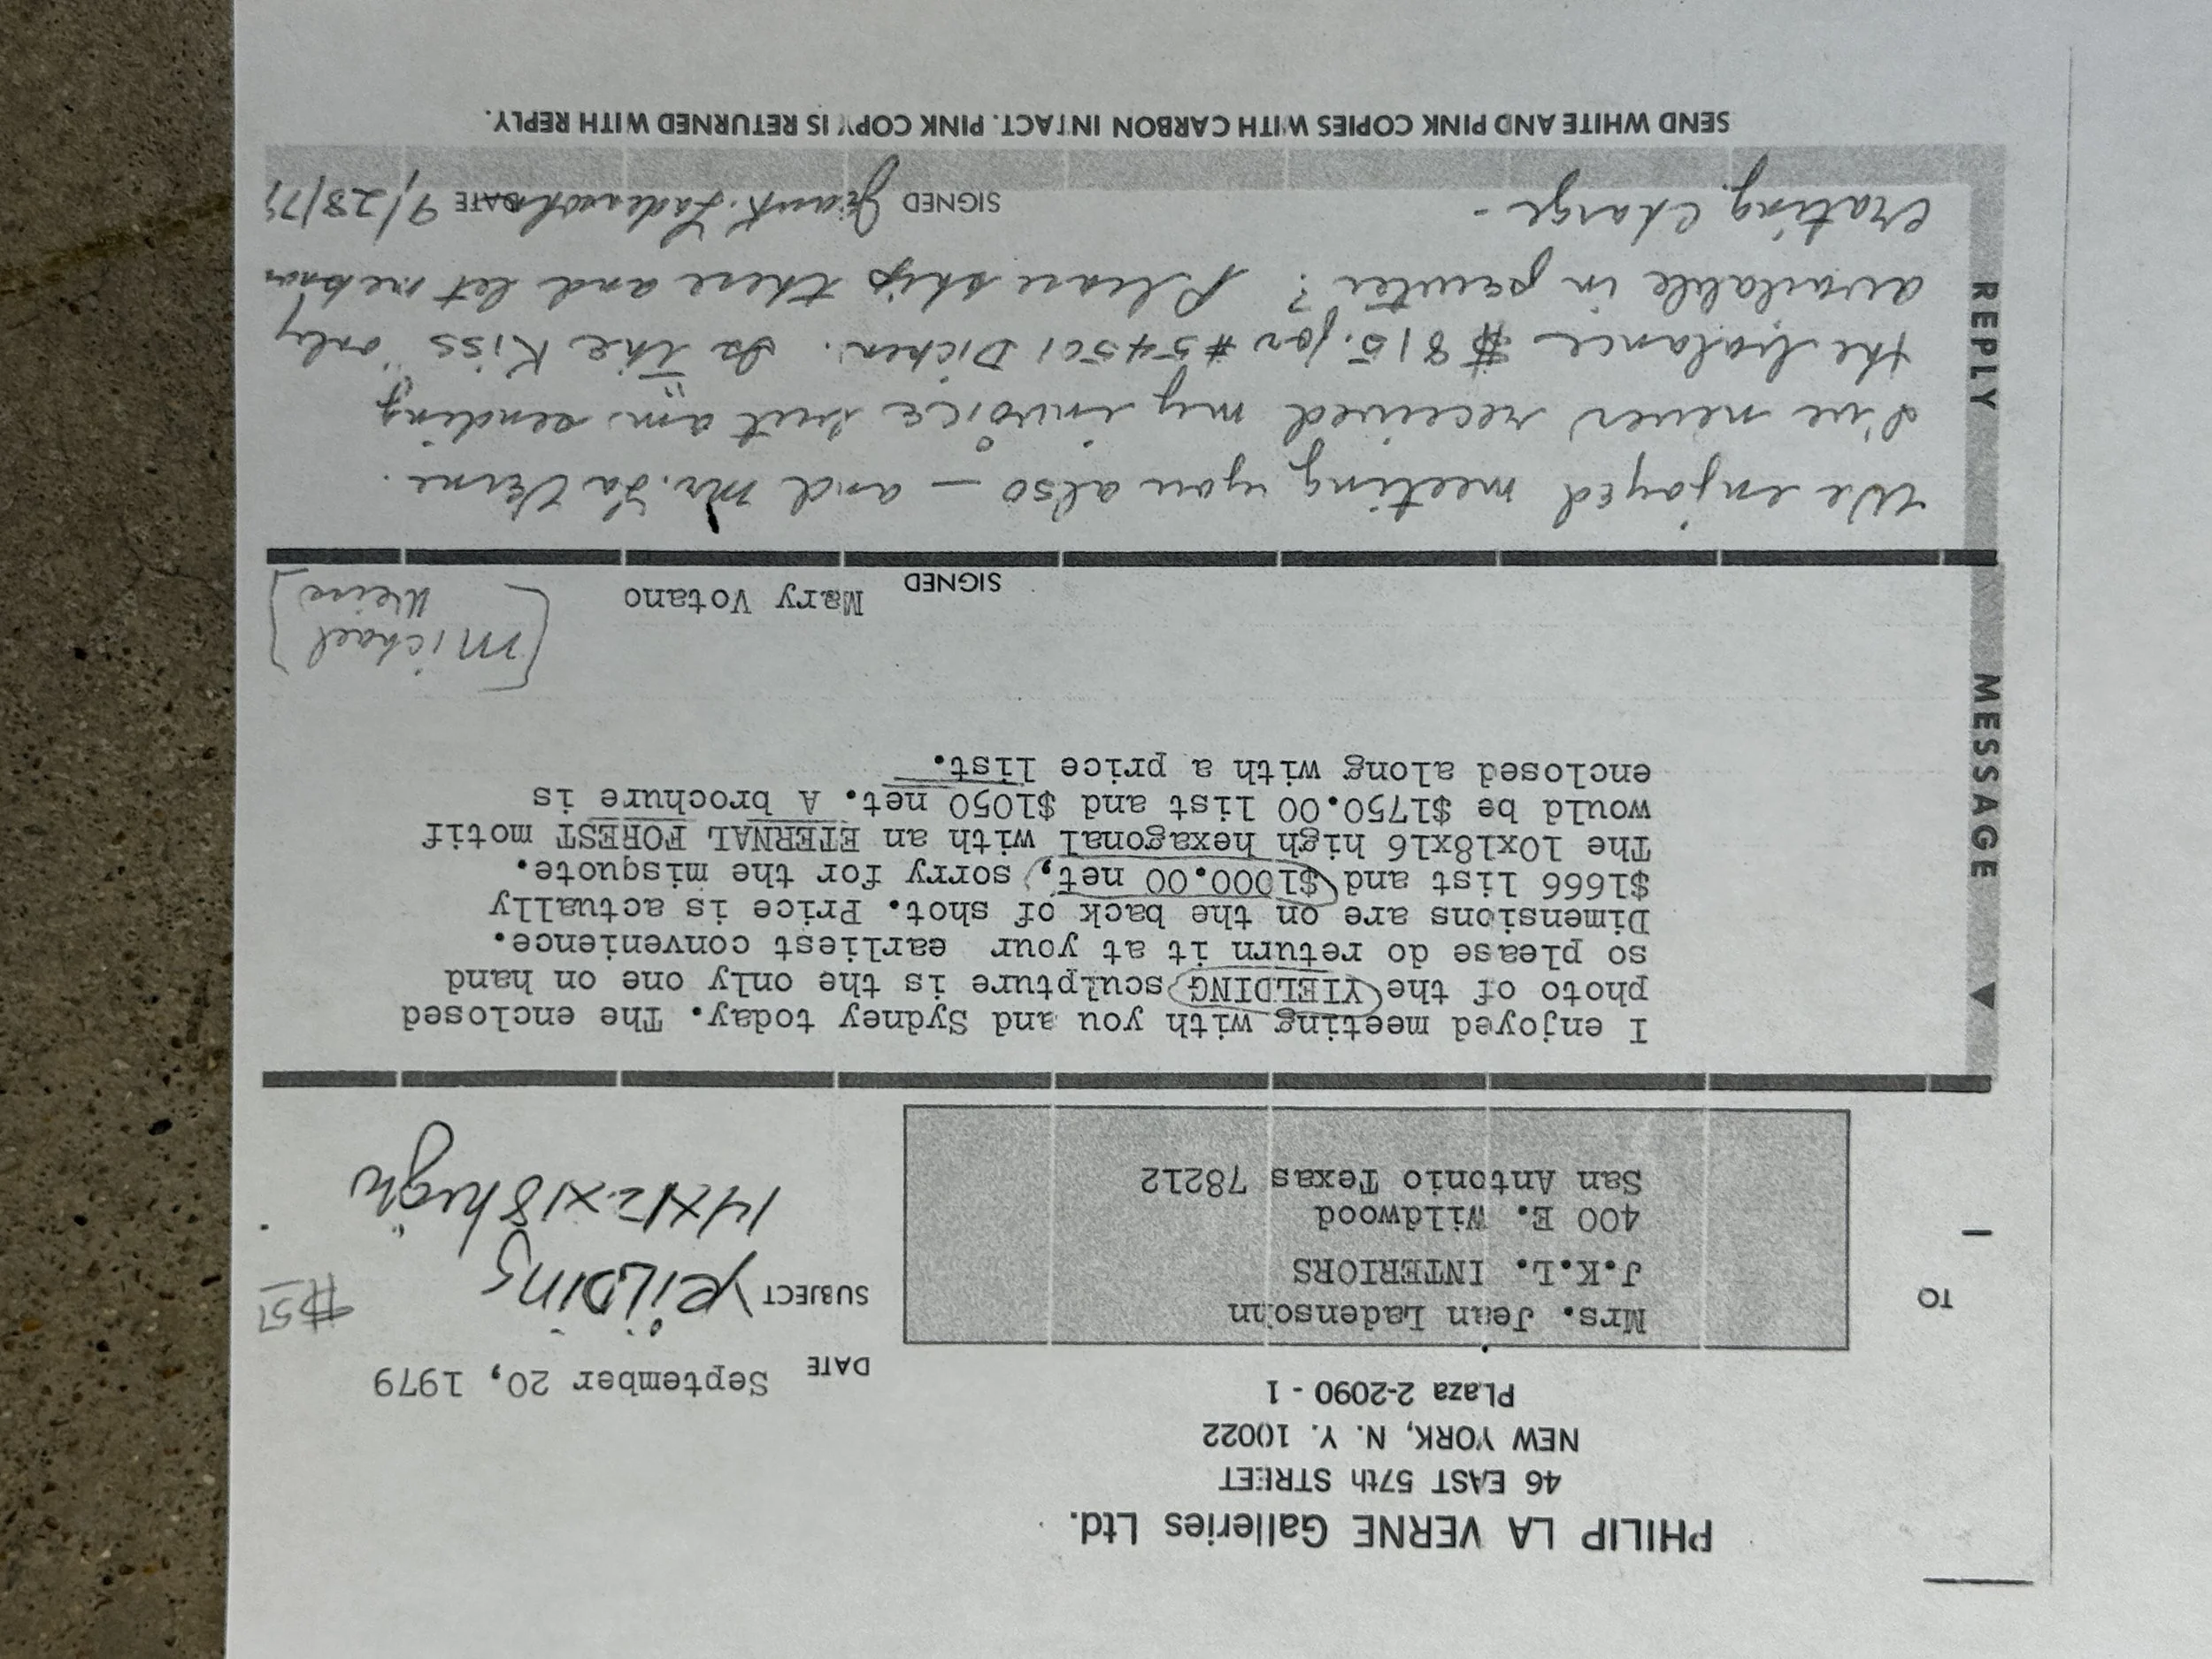 PHILIP LA VERNE Galleries Ltd.
46 EAST 57th STREET
NEW YORK, N. Y. 10022
PLaza 2-2090 - 1
DATE September 20, 1979
TO
Mrs. Jean Ladensohn
J.K.L. INTERIORS
400 E. Wildwood
San Antonio Texas 78212
SUBJECT yeilding
14x12x18 high
MESSAGE
I enjoyed meeting with you and Sydney today. The enclosed
photo of the YIELDING sculpture is the only one on hand
so please do return it at your earliest convenience.
Dimensions are on the back of shot. Price is actually
$1666 list and $1000.00 net, sorry for the misquote.
The 10x18x16 high hexagonal with an ETERNAL FOREST motif
would be $1750.00 list and $1050 net. A brochure is
enclosed along with a price list.
SIGNED Mary Votano
[Michael
REPLY
We enjoyed meeting you also — and Mr. La Verne.
I've never received my invoice but am sending
the balance $815. for #54501 Dicken. Is "The Kiss" only
available in pewter? Please ship these and let me know
crating charge -
SIGNED Jean K. Ladensohn DATE 9/28/79
SEND WHITE AND PINK COPIES WITH CARBON INTACT. PINK COPY IS RETURNED WITH REPLY.